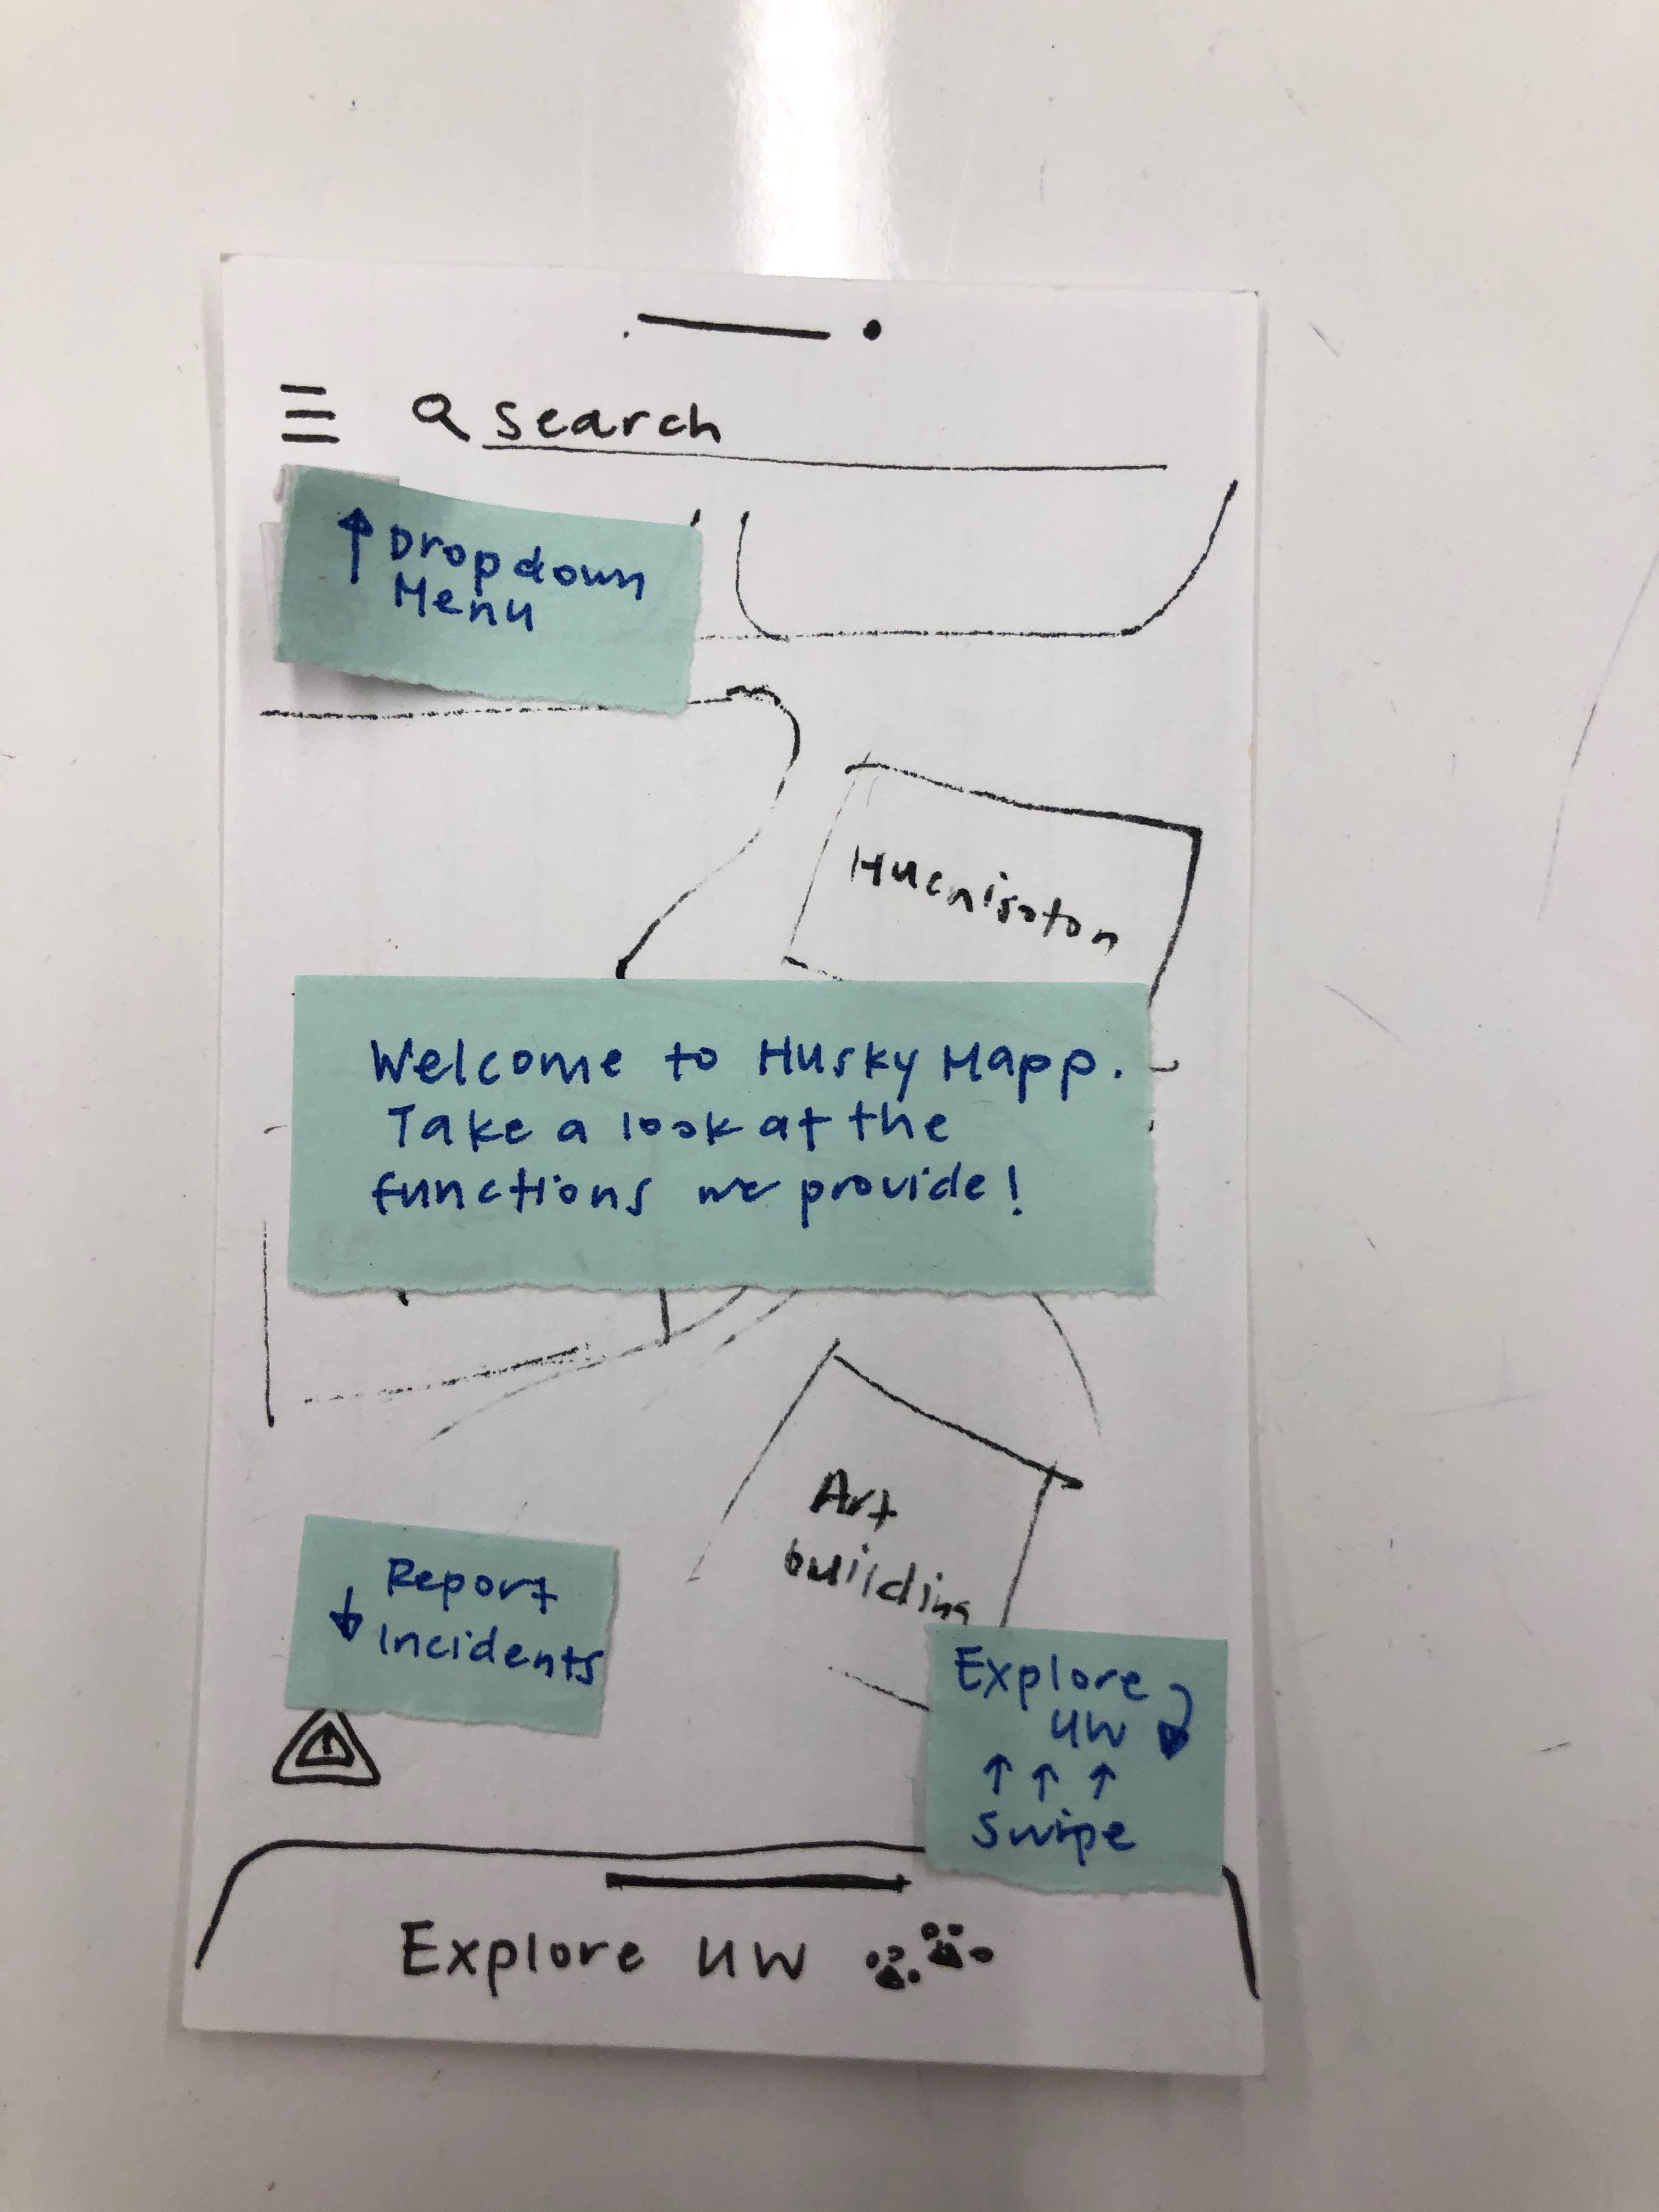 search
Dropdown
Menu
Welcome to Husky Mapp.
Take a look at the
functions we provide!
Art
buildin
Report
Incidents
Explore
UW
Swipe
Explore UW